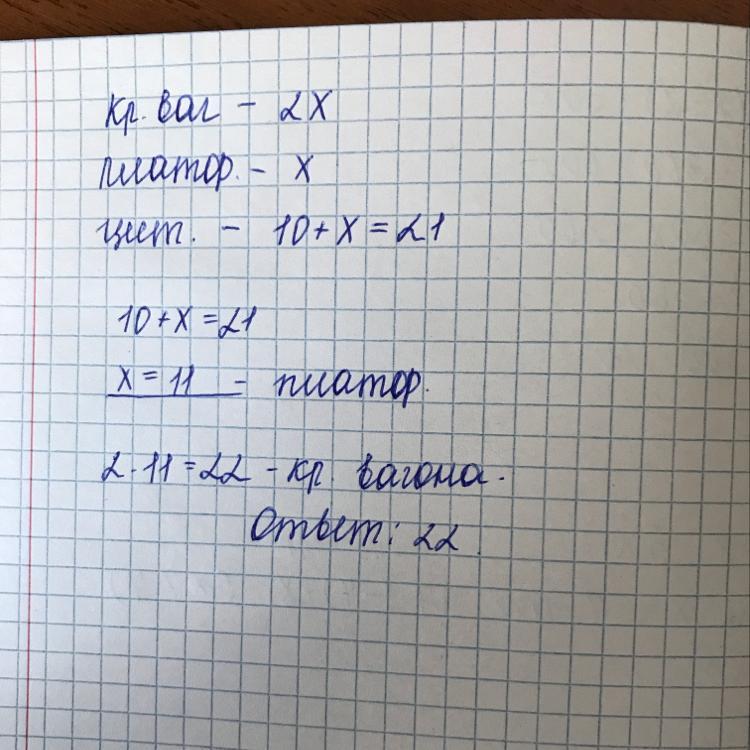 кр. ваг - 2х
платфор. - х
цист. - 10+х=21
10+х=21
х=11 - платфор.
2·11=22 - кр. вагона.
Ответ: 22